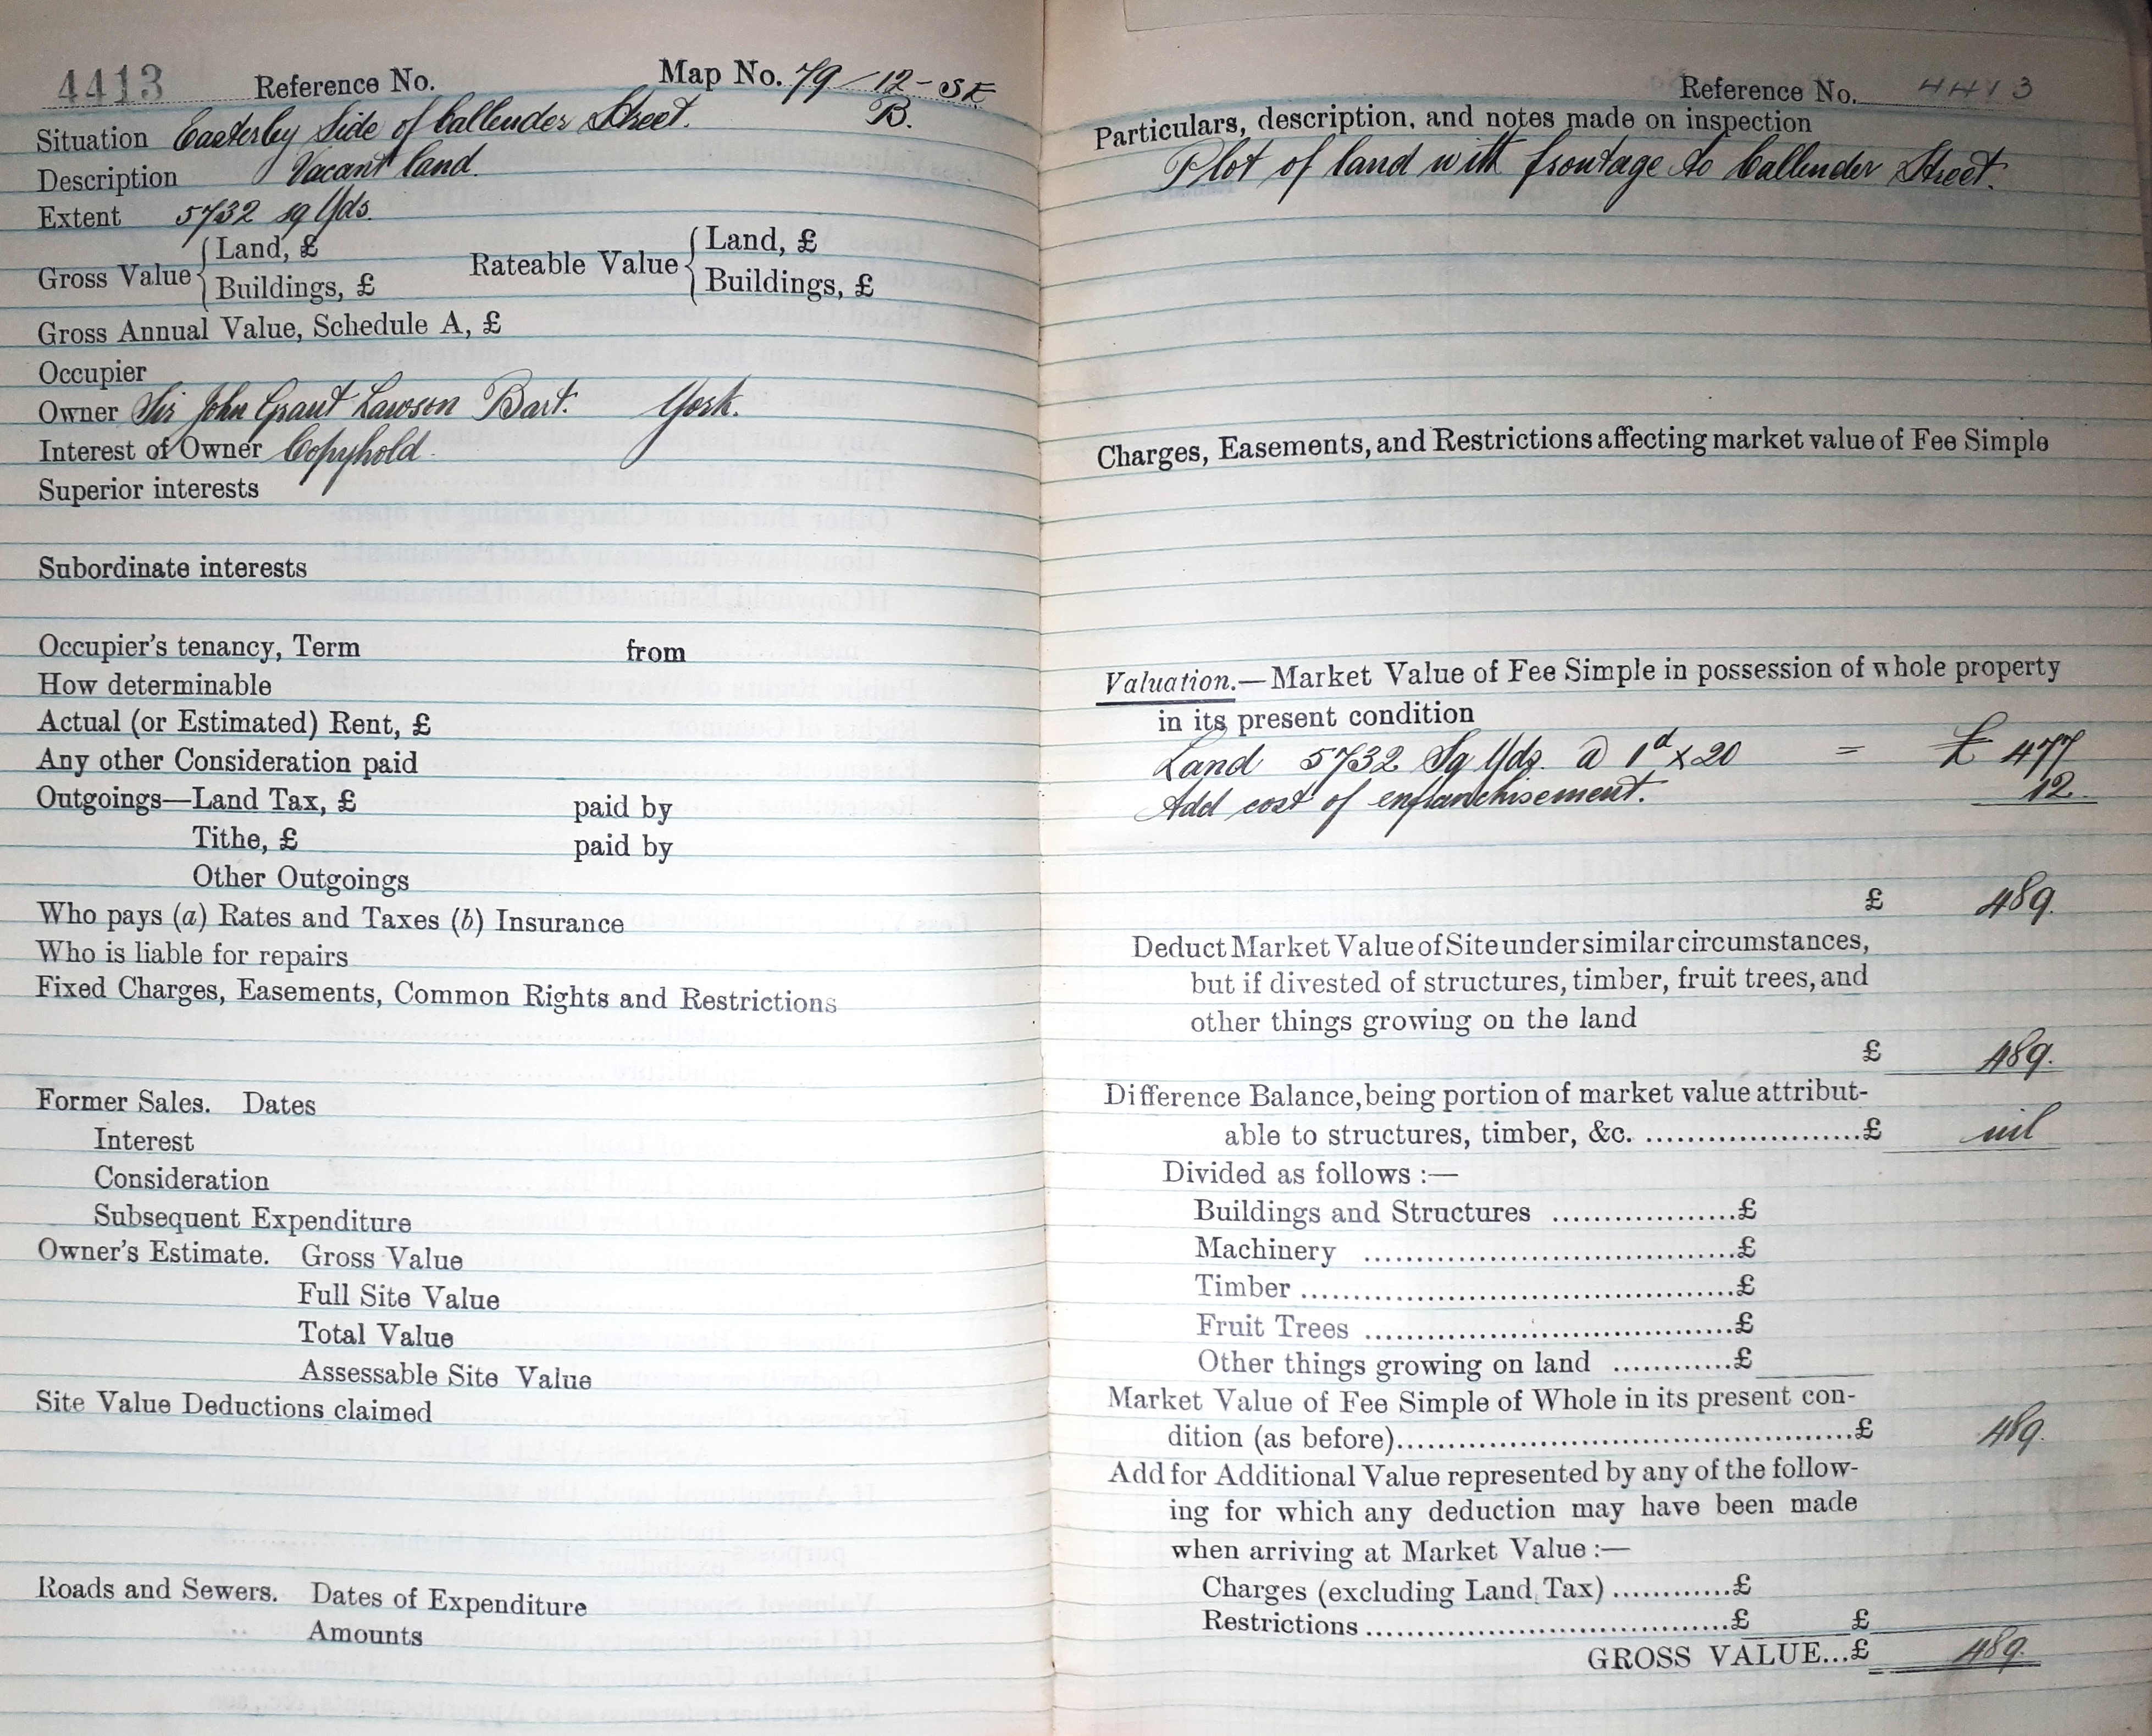 4413 Reference No. Map No. 79/12-SE
B.
Situation Easterby Side of Callender Street.
Description Vacant land.
Extent 5732 sq Yds.
Gross Value { Land, £ Rateable Value { Land, £
Buildings, £ Buildings, £
Gross Annual Value, Schedule A, £
Occupier
Owner Sir John Grant Lawson Bart. York.
Interest of Owner Copyhold.
Superior interests
Subordinate interests
Occupier's tenancy, Term from
How determinable
Actual (or Estimated) Rent, £
Any other Consideration paid
Outgoings—Land Tax, £ paid by
Tithe, £ paid by
Other Outgoings
Who pays (a) Rates and Taxes (b) Insurance
Who is liable for repairs
Fixed Charges, Easements, Common Rights and Restrictions
Former Sales. Dates
Interest
Consideration
Subsequent Expenditure
Owner's Estimate. Gross Value
Full Site Value
Total Value
Assessable Site Value
Site Value Deductions claimed
Roads and Sewers. Dates of Expenditure
Amounts
Reference No. 4413
Particulars, description, and notes made on inspection
Plot of land with frontage to Callender Street.
Charges, Easements, and Restrictions affecting market value of Fee Simple
Valuation.—Market Value of Fee Simple in possession of whole property
in its present condition
Land 5732 Sq Yds. @ 1d x 20 = £ 477
Add cost of enfranchisement. 12.
£ 489.
Deduct Market Value of Site under similar circumstances,
but if divested of structures, timber, fruit trees, and
other things growing on the land
£ 489.
Difference Balance, being portion of market value attribut-
able to structures, timber, &c. ......................£ nil
Divided as follows :—
Buildings and Structures ..................£
Machinery ....................................£
Timber ..........................................£
Fruit Trees ....................................£
Other things growing on land ............£
Market Value of Fee Simple of Whole in its present con-
dition (as before)..............................................£ 489.
Add for Additional Value represented by any of the follow-
ing for which any deduction may have been made
when arriving at Market Value :—
Charges (excluding Land Tax) ............£
Restrictions ....................................£ £
GROSS VALUE...£ 489.